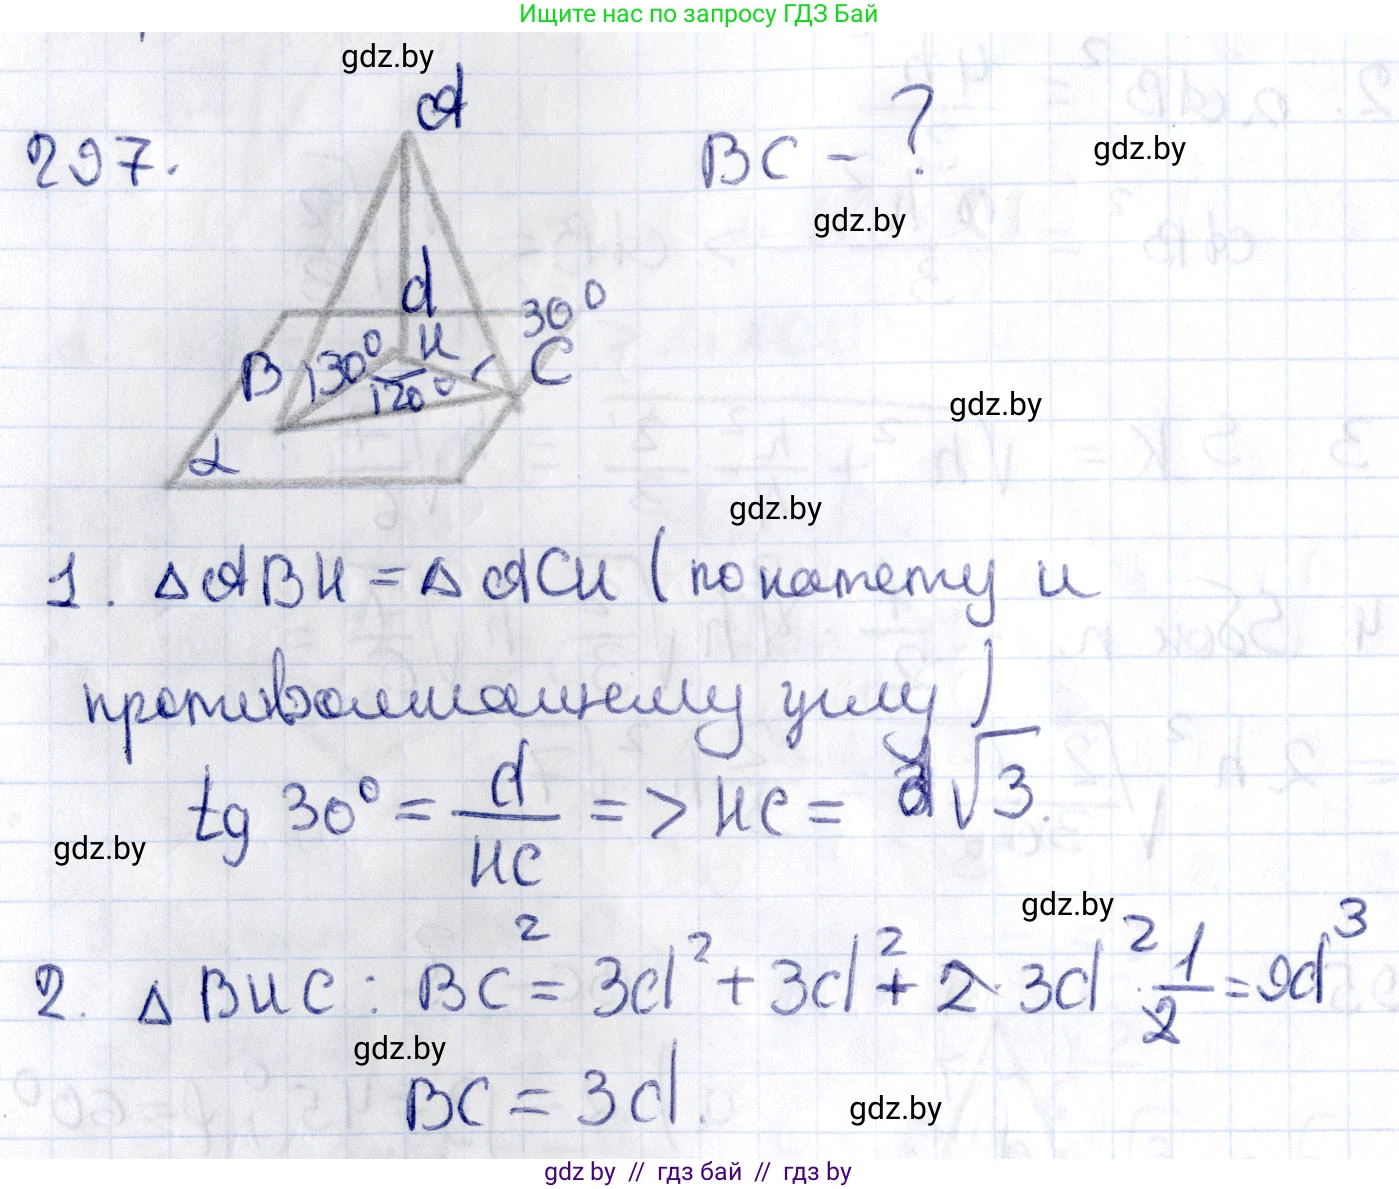 Ищите нас по запросу ГДЗ Бай
gdz.by
A
297.
BC - ?
gdz.by
gdz.by
d
30°
B 130° H C
120°
α
gdz.by
gdz.by
1. △ABH = △ACH (по катету и
противолежащему углу)
tg 30° = d/HC => HC = d√3.
gdz.by
gdz.by
2. △BHC: BC² = 3d² + 3d² + 2·3d²·1/2 = 9d³
gdz.by
BC = 3d.
gdz.by
gdz.by // гдз бай // гдз by